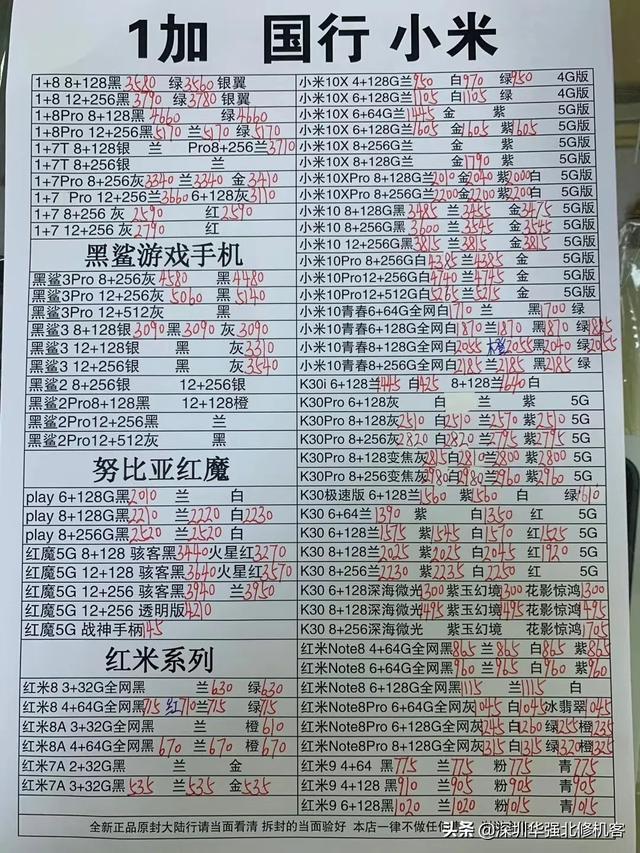 1加 国行 小米
1+8 8+128黑3580 绿3560 银翼
1+8 12+256黑3790 绿3780 银翼
1+8Pro 8+128黑4660 绿4660
1+8Pro 12+256黑5170 兰5170 绿5170
1+7T 8+128银 兰 Pro8+256兰3710
1+7T 8+256银 兰
1+7Pro 8+256灰3340 兰3340 金3410
1+7 Pro 12+256兰3660 6+128灰3110
1+7 8+256 灰 2590 红2590
1+7 12+256 灰2790 红
黑鲨游戏手机
黑鲨3Pro 8+256灰4580 黑4480
黑鲨3Pro 12+256灰5060 黑5140
黑鲨3Pro 12+512灰 黑
黑鲨3 8+128银3090黑3090 灰3090
黑鲨3 12+128银 黑 灰3310
黑鲨3 12+256银 黑 灰3540
黑鲨2 8+256银 12+256银
黑鲨2Pro8+128黑 12+128橙
黑鲨2Pro12+256黑 兰
黑鲨2Pro12+512灰 黑
努比亚红魔
play 6+128G黑2010 兰 白
play 8+128G黑2210 兰2220 白2230
play 8+256G黑2520 兰2520 白
红魔5G 8+128 骇客黑3440火星红3270
红魔5G 12+128 骇客黑3640火星红3570
红魔5G 12+256 骇客黑3940 兰3950
红魔5G 12+256 透明版4210
红魔5G 战神手柄145
红米系列
红米8 3+32G全网黑 兰630 绿630
红米8 4+64G全网黑715 红710兰 绿715
红米8A 3+32G全网黑 兰 橙610
红米8A 4+64G全网黑 670 兰 670 橙 670
红米7A 2+32G黑 兰 金
红米7A 3+32G黑 535 兰 535 金 535
小米10X 4+128G兰950 白970 绿950 4G版
小米10X 6+128G兰1105 白1105 绿 4G版
小米10X 6+64G兰1445 金 紫 5G版
小米10X 6+128G兰1605 金1605 紫1605 5G版
小米10X 8+128G兰 金 紫 5G版
小米10X 8+256G兰 金1790 紫 5G版
小米10XPro 8+128G兰2010 金2040 紫2000白 5G版
小米10XPro 8+256G兰2200金2200 紫2200白 5G版
小米10 8+128G黑 3485 兰 3455 金3475 5G版
小米10 8+256G黑 3600 兰 3545 金3545 5G版
小米10 12+256G黑3815 兰3815 金3815 5G版
小米10Pro 8+256G白4385 兰4385 金 5G版
小米10Pro12+256G白4740 兰4745 金 5G版
小米10Pro12+512G白5265 兰5215 金 5G版
小米10青春6+64G全网白1710 兰 黑1700 绿
小米10青春6+128G全网白1870 兰1870 黑1870 绿
小米10青春8+128G全网白2055 橙2055黑2040 绿2055
小米10青春8+256G全网白2185 兰2185 黑2185 绿
K30i 6+128兰1445 白1425 8+128兰1640白
K30Pro 6+128灰 白 兰 紫 5G
K30Pro 8+128灰2510 白2510 兰2570 紫2510 5G
K30Pro 8+256灰2820 白2820 兰2795 紫2795 5G
K30Pro 8+128变焦灰2815白2810兰2800 紫2800
K30Pro 8+256变焦灰2980白2980兰2960 紫2960
K30极速版 6+128兰1560 紫1560 白 绿1610
K30 6+64兰1390 紫 白1350 红 5G
K30 6+128兰1575 紫1545 白1570 红1525 5G
K30 8+128兰2025 紫2025 白2045 红1920 5G
K30 8+256兰2230 紫2235 白2250 红 5G
K30 6+128深海微光1300 紫玉幻境1300 花影惊鸿1300
K30 8+128深海微光1495 紫玉幻境1495 花影惊鸿1495
K30 8+256深海微光 紫玉幻境 花影惊鸿1705
红米Note8 4+64G全网黑865 兰865 白865 紫865
红米Note8 6+64G全网黑960 兰965 白960 紫960
红米Note8 6+128G全网黑1115 兰1115 白
红米Note8Pro 6+64G全网灰1045 白1045冰翡翠1045
红米Note8Pro 6+128G全网灰1245 白1260 绿1255 橙1235
红米Note8Pro 8+128G全网灰1315 白1315 绿1320橙1325
红米9 4+64 黑775 兰775 粉775 青775
红米9 4+128 黑910 兰905 粉905 青905
红米9 6+128黑1020 兰1020 粉1015 青1015
全新正品原封大陆行请当面看清 拆封的当面验好 本店一律不做任何
头条 @深圳华强北修机客